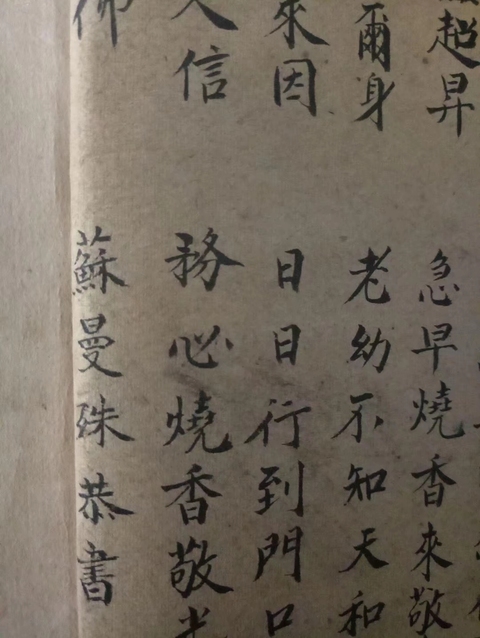 超昇 急早燒香來敬
爾身 老幼不知天和
來因 日日行到門口
信 務必燒香敬
佛 蘇曼殊恭書